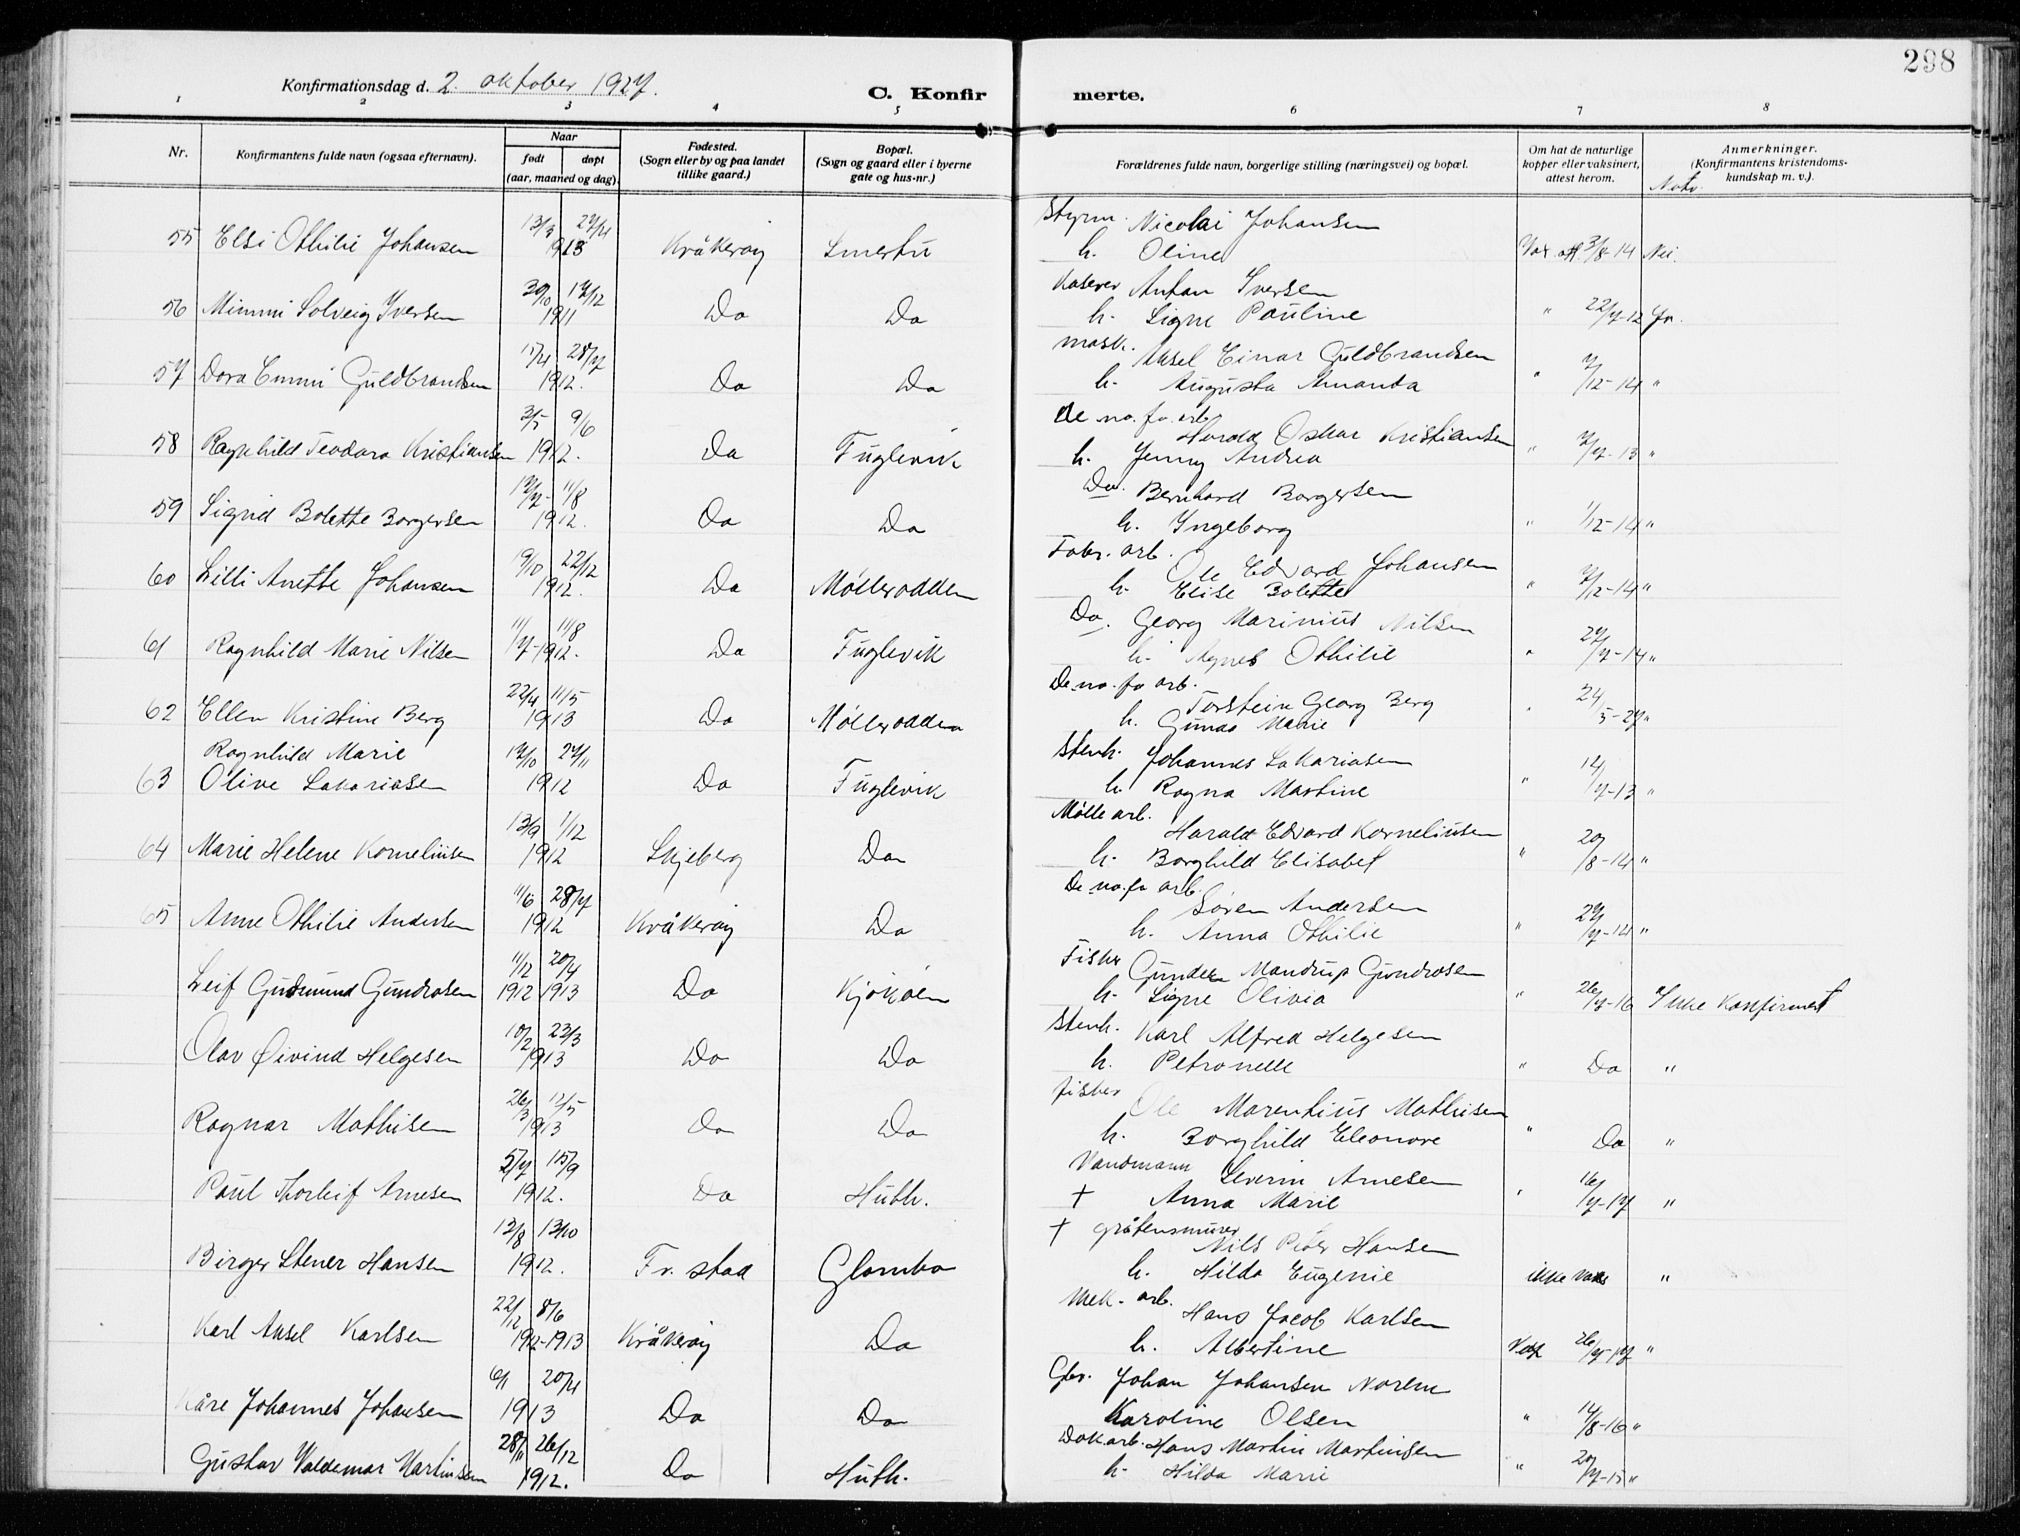 298
Konfirmationsdag d. 2. oktober 1927.
C. Konfirmerte.
1 2 3 4 5 6 7 8
Nr.
Konfirmantens fulde navn (ogsaa efternavn).
Naar
født døpt
(aar, maaned og dag)
Fødested.
(Sogn eller by og paa landet
tillike gaard.)
Bopæl.
(Sogn og gaard eller i byerne
gate og hus-nr.)
Forældrenes fulde navn, borgerlige stilling (næringsvei) og bopæl.
Om hat de naturlige
kopper eller vaksinert,
attest herom.
Anmerkninger.
(Konfirmantens kristendoms-
kundskap m. v.).
Natv.
13/3 27/4 Styrm. Nicolai Johansen
55 Elsi Othilie Johansen 1913 Kråkerøy Smertu h. Oline Vax. att 3/8-14 Nei.
30/10 17/12 Anton Iversen
56 Mimmi Solveig Iversen 1911 Do Do h. Signe Pauline " 22/7-12 Ja.
15/4 28/7 mask. Aksel Einar Guldbrandsen
57 Dora Emmi Guldbrandsen 1912. Do Do h. Augusta Amanda " 7/12-14 "
3/5 9/6 De no. fa. arb. Harald Oskar Kristiansen
58 Ragnhild Teodora Kristiansen 1912. Do Fuglevik h. Jenny Andrea " 7/7-13 "
17/7 11/8 Do. Bernhard Borgersen
59 Sigrid Bolette Borgersen 1912. Do Do h. Ingeborg " 1/12-14 "
19/10 22/12 Fabr. arb. Ole Edvard Johansen
60 Lilli Anette Johansen 1912. Do Møllerodden h. Elise Bolette " 7/12-14 "
11/7 11/8 Do. Georg Marinius Nilsen
61 Ragnhild Marie Nilsen 1912. Do Fuglevik h. Agnes Othilie " 27/7-14 "
22/4 11/5 De no. fa arb. Torstein Georg Berg
62 Ellen Kristine Berg 1913 Do Møllerodden h. Gunda Marie " 24/5-27 "
Ragnhild Marie 17/10 24/11 Stenh. Johannes Sakariasen
63 Olive Sakariasen 1912 Do Fuglevik h. Ragna Martine " 14/7-13 "
13/9 1/12 Mølle arb. Harald Edvard Korneliusen
64 Marie Helene Kornelius­en 1912 Skjeberg Do h. Borghild Elisabet " 20/8-14 "
11/6 28/7 De no. fa arb. Søren Andersen
65 Anne Othilie Andersen 1912 Kråkerøy Do h. Anna Othilie " 27/7-14 "
11/12 20/4 Fisker Gunder Mandrup Gundrosen
Leif Gudmund Gundrosen 1912 1913 Do Kjøkøen h. Signe Olivia " 26/7-16 Ikke Konfirmert
10/2 23/3 Stenh. Karl Alfred Helgesen
Olav Øivind Helgesen 1913 Do Do h. Petronelle " Do "
26/3 12/5 fisker Ole Marentius Mathisen
Ragnar Mathisen 1913 Do Do h. Borghild Eleonore " Do "
5/7 15/9 Vandmann Severin Arnesen
Paul Thorleif Arnesen 1912. Do Huth. † Anna Marie " 16/7-17 "
13/8 13/10 † gråstensmurer Nils Peder Hansen
Birger Stener Hansen 1912. Fr. stad Glombo h. Hilda Eugenie ikke vaks "
22/12 8/6 Mek. arb. Hans Jacob Karlsen
Karl Aksel Karlsen 1912-1913 Kråkerøy Do h. Albertine 26/7-17 "
6/1 20/4 Gbr. Johan Johansen Norem
Kåre Johannes Johansen 1913 Do Do Karoline Olsen " 14/8-16 "
28/11 26/12 Dokarb. Hans Martin Martinsen
Gustav Valdemar Martinsen 1912. Do Huth. h. Hilda Marie " 20/7-15 "